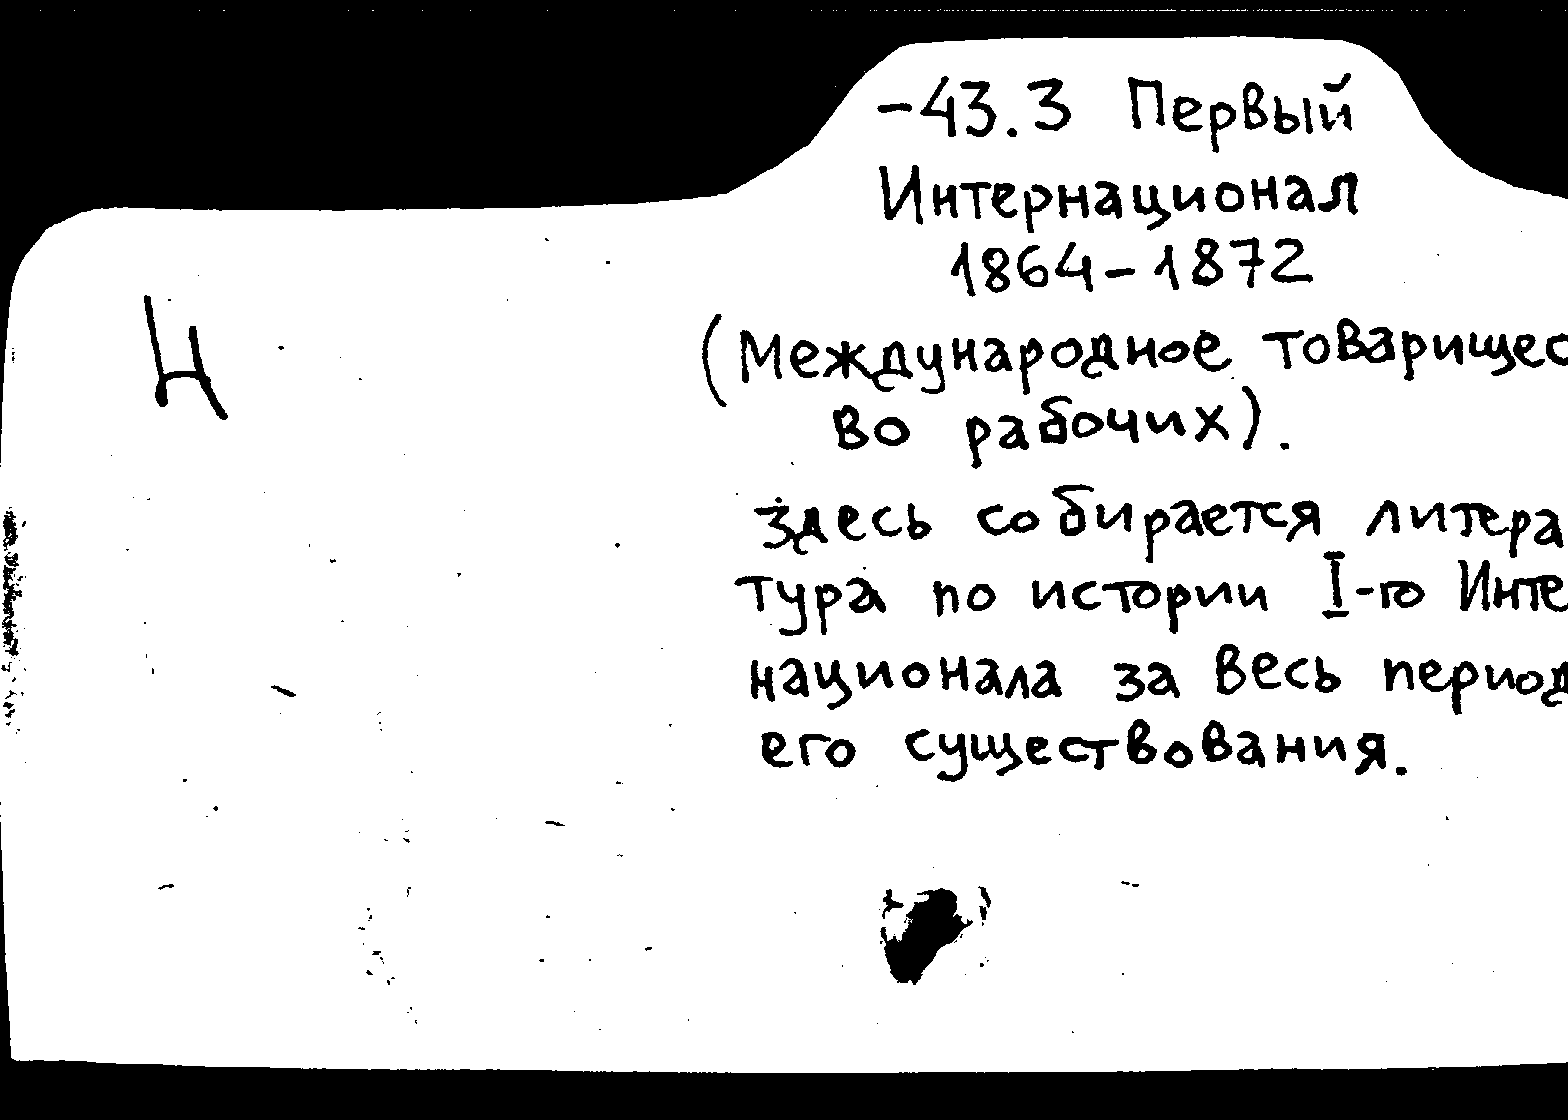 -43.3 Первый
Интернационал
1864-1872
Ч
(Международное товарищес
во рабочих).
Здесь собирается литера
тура по истории I-го Инте
национала за весь период
его существования.